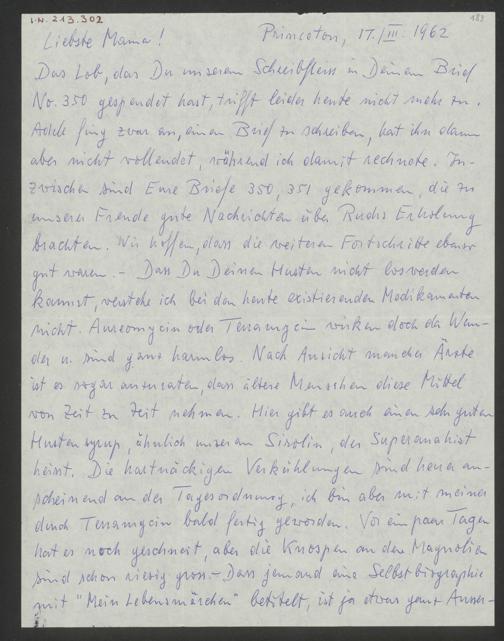 I.N. 213.302
182
Liebste Mama! Princeton, 17./III. 1962
Das Lob, das Du unserem Schreibfleiss in Deinem Brief
No. 350 gespendet hast, trifft leider heute nicht mehr zu.
Adele fing zwar an, einen Brief zu schreiben, hat ihn dann
aber nicht vollendet, während ich damit rechnete. In-
zwischen sind Eure Briefe 350, 351 gekommen, die zu
unserer Freude gute Nachrichten über Rudis Erholung
brachten. Wir hoffen, dass die weiteren Fortschritte ebenso
gut waren. – Dass Du Deinen Husten nicht loswerden
kannst, verstehe ich bei den heute existierenden Medikamenten
nicht. Aureomycin oder Terramycin wirken doch da Wun-
der u. sind ganz harmlos. Nach Ansicht mancher Ärzte
ist es sogar anzuraten, dass ältere Menschen diese Mittel
von Zeit zu Zeit nehmen. Hier gibt es auch einen sehr guten
Hustensyrup, ähnlich unserem Sirolin, der Superanahist
heisst. Die hartnäckigen Verkühlungen sind heuer an-
scheinend an der Tagesordnung, ich bin aber mit meiner
durch Terramycin bald fertig geworden. Vor ein paar Tagen
hat es noch geschneit, aber die Knospen an den Magnolien
sind schon riesig gross. – Dass jemand eine Selbstbiographie
mit "Mein Lebensmärchen" betitelt, ist ja etwas ganz Ausser-